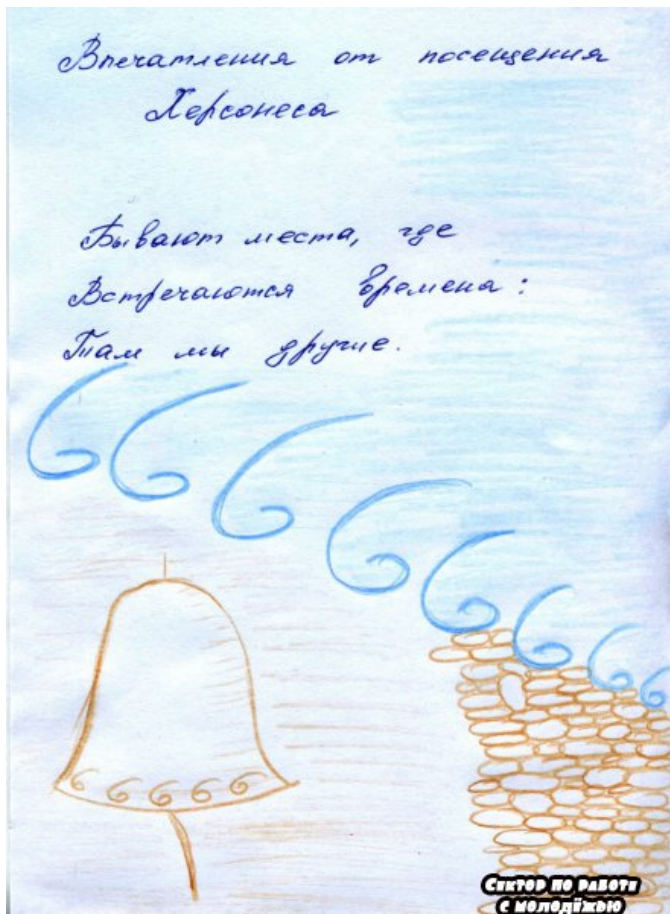 Впечатления от посещения
Херсонеса
Бывают места, где
Встречаются времена:
Там мы другие.
Сектор по работе
с молодёжью